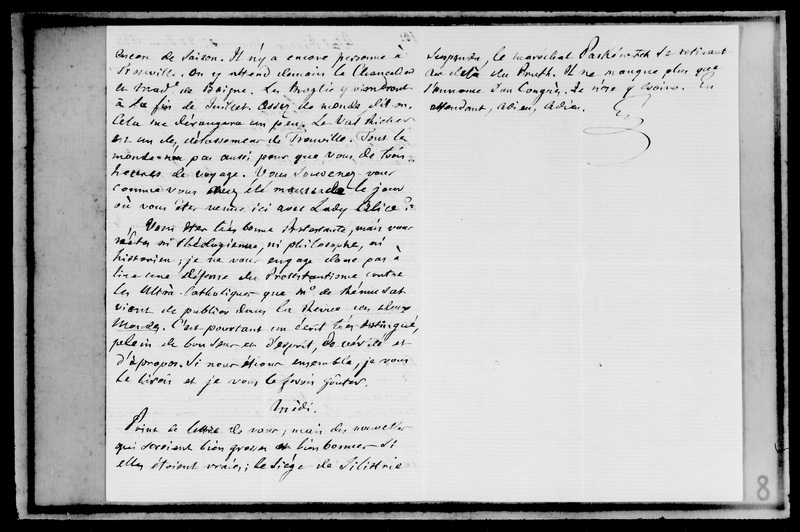 encore de saison. Il n'y a encore personne à
Trouville. On y attend demain le Chancelier
et Mad. de Boigne. Les Broglie y viendront
à la fin de Juillet. Assez de monde, dit-on.
Cela me dérangera un peu. Le Val Richer
est un des délassements de Trouville. Tout le
monde n'a pas aussi peur que vous de trois
heures de voyage. Vous souvenez-vous
comme vous avez été malade le jour
où vous êtes venue ici avec Lady Alice ?
Vous êtes très bonne protestante, mais vous
n'êtes ni théologienne, ni philosophe, ni
historien ; je ne vous engage donc pas à
lire une défense du Protestantisme contre
les Ultra-Catholiques que Mr de Rémusat
vient de publier dans la Revue des deux
Mondes. C'est pourtant un écrit très distingué,
plein de bon sens et d'esprit, de vérité et
d'àpropos. Si nous étions ensemble, je vous
le lirois et je vous le ferois goûter.
Midi.
Point de lettre de vous ; mais des nouvelles
qui seroient bien grosses et bien bonnes si
elles étoient vraies ; le siège de Silistrie
suspendu, le maréchal Paskéwitch se retirant
au delà du Pruth. Il ne manque plus que
l'annonce d'un Congrès. Je n'ose y croire. En
attendant, adieu, adieu.
8